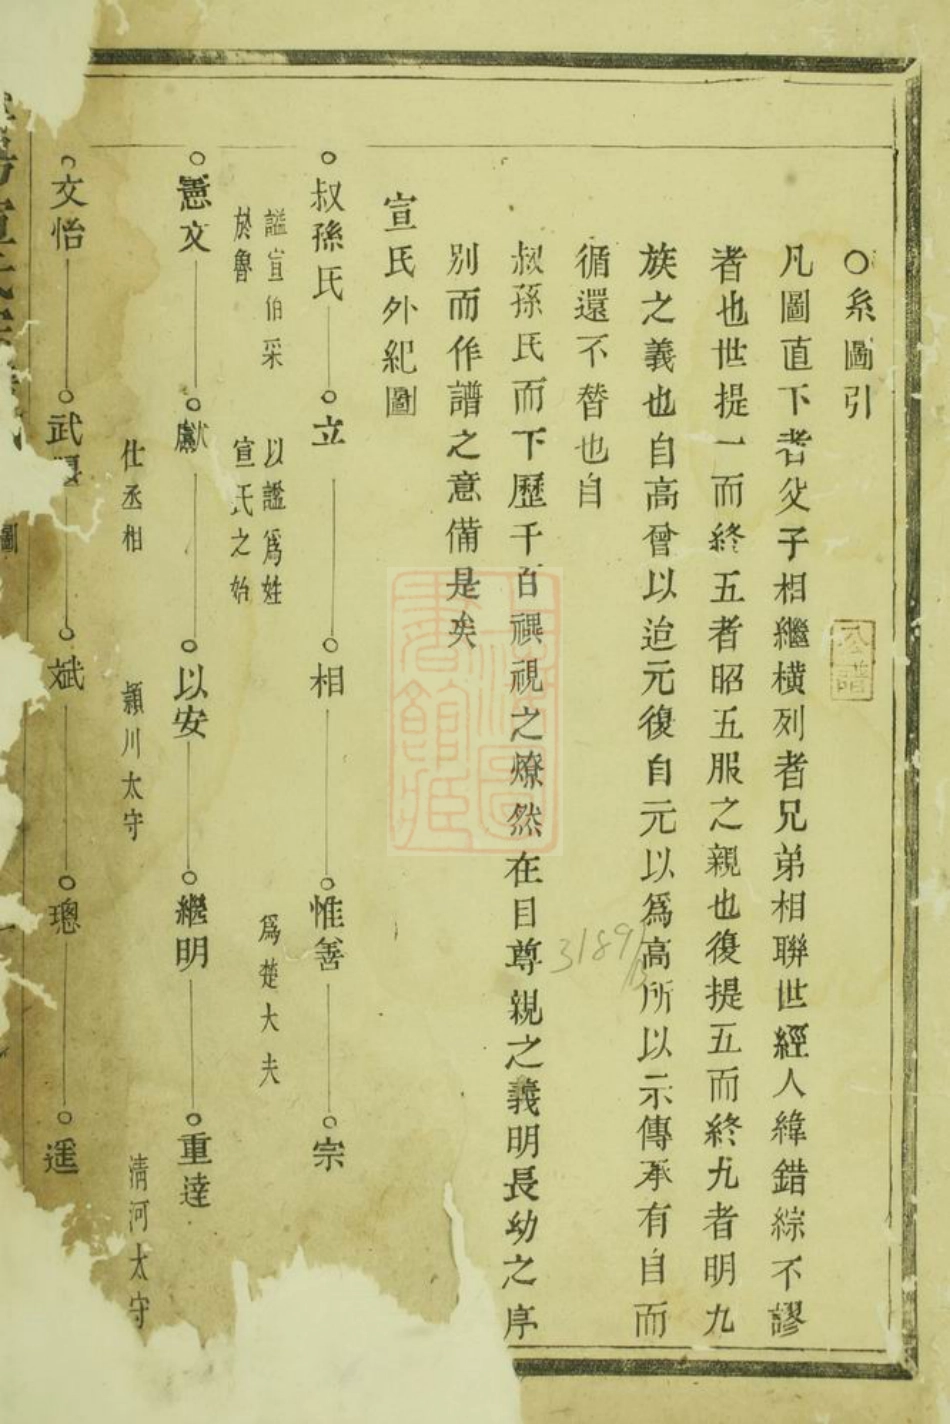 ○系圖引
公譜
凡圖直下者父子相繼橫列者兄弟相聯世經人緯錯綜不謬
者也世提一而終五者昭五服之親也復提五而終九者明九
族之義也自高曾以迨元復自元以為高所以示傳承有自而
循還不替也自
叔孫氏而下歷千百禩視之燎然在目尊親之義明長幼之序
別而作譜之意備是矣
宣氏外紀圖
叔孫氏 立 相 惟善 宗
謚宣伯采於魯
以謚為姓宣氏之始
為楚大夫
憲文 獻 以安 繼明 重達
仕丞相
潁川太守
清河太守
文怡 武 斌 璁 遥
宣氏
圖
31891